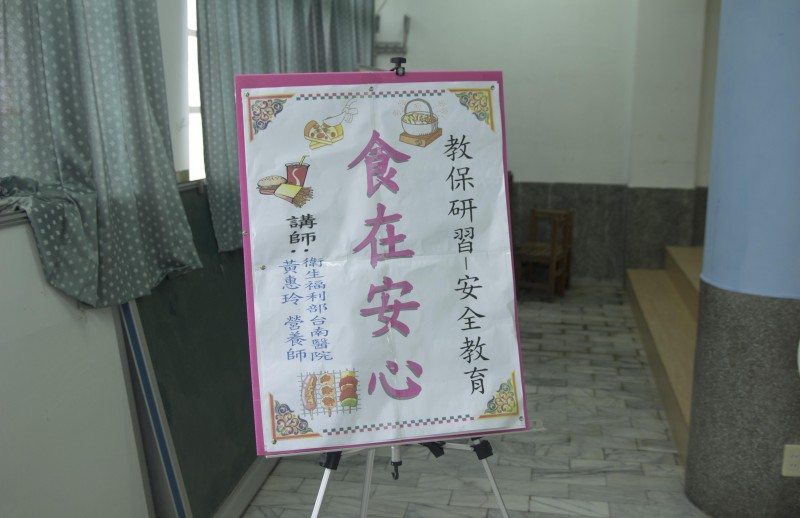 教保研習-安全教育
食在安心
講師:
衛生福利部台南醫院
黃惠玲 營養師